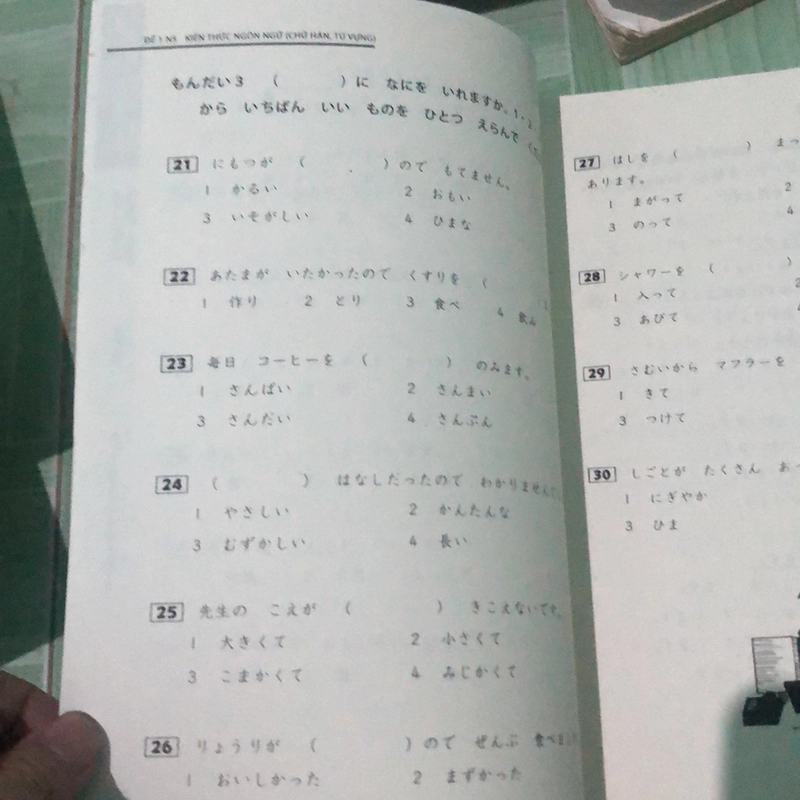 ĐỀ 1 N5 KIẾN THỨC NGÔN NGỮ (CHỮ HÁN, TỪ VỰNG)
もんだい3 （　　）に なにを いれますか。1・2
から いちばん いい ものを ひとつ えらんで
21 にもつが （　　）ので もてません。
1 かるい 2 おもい
3 いそがしい 4 ひまな
22 あたまが いたかったので くすりを （
1 作り 2 とり 3 食べ 4 飲み
23 毎日 コーヒーを （　　） のみます。
1 さんばい 2 さんまい
3 さんだい 4 さんぷん
24 （　　） はなしだったので わかりません
1 やさしい 2 かんたんな
3 むずかしい 4 長い
25 先生の こえが （　　） きこえないです。
1 大きくて 2 小さくて
3 こまかくて 4 みじかくて
26 りょうりが （　　）ので ぜんぶ 食べま
1 おいしかった 2 まずかった
27 はしを （　　） まっ
あります。
1 まがって 2
3 のって 4
28 シャワーを （　　）
1 入って
3 あびて
29 さむいから マフラーを
1 きて
3 つけて
30 しごとが たくさん あっ
1 にぎやか
3 ひま